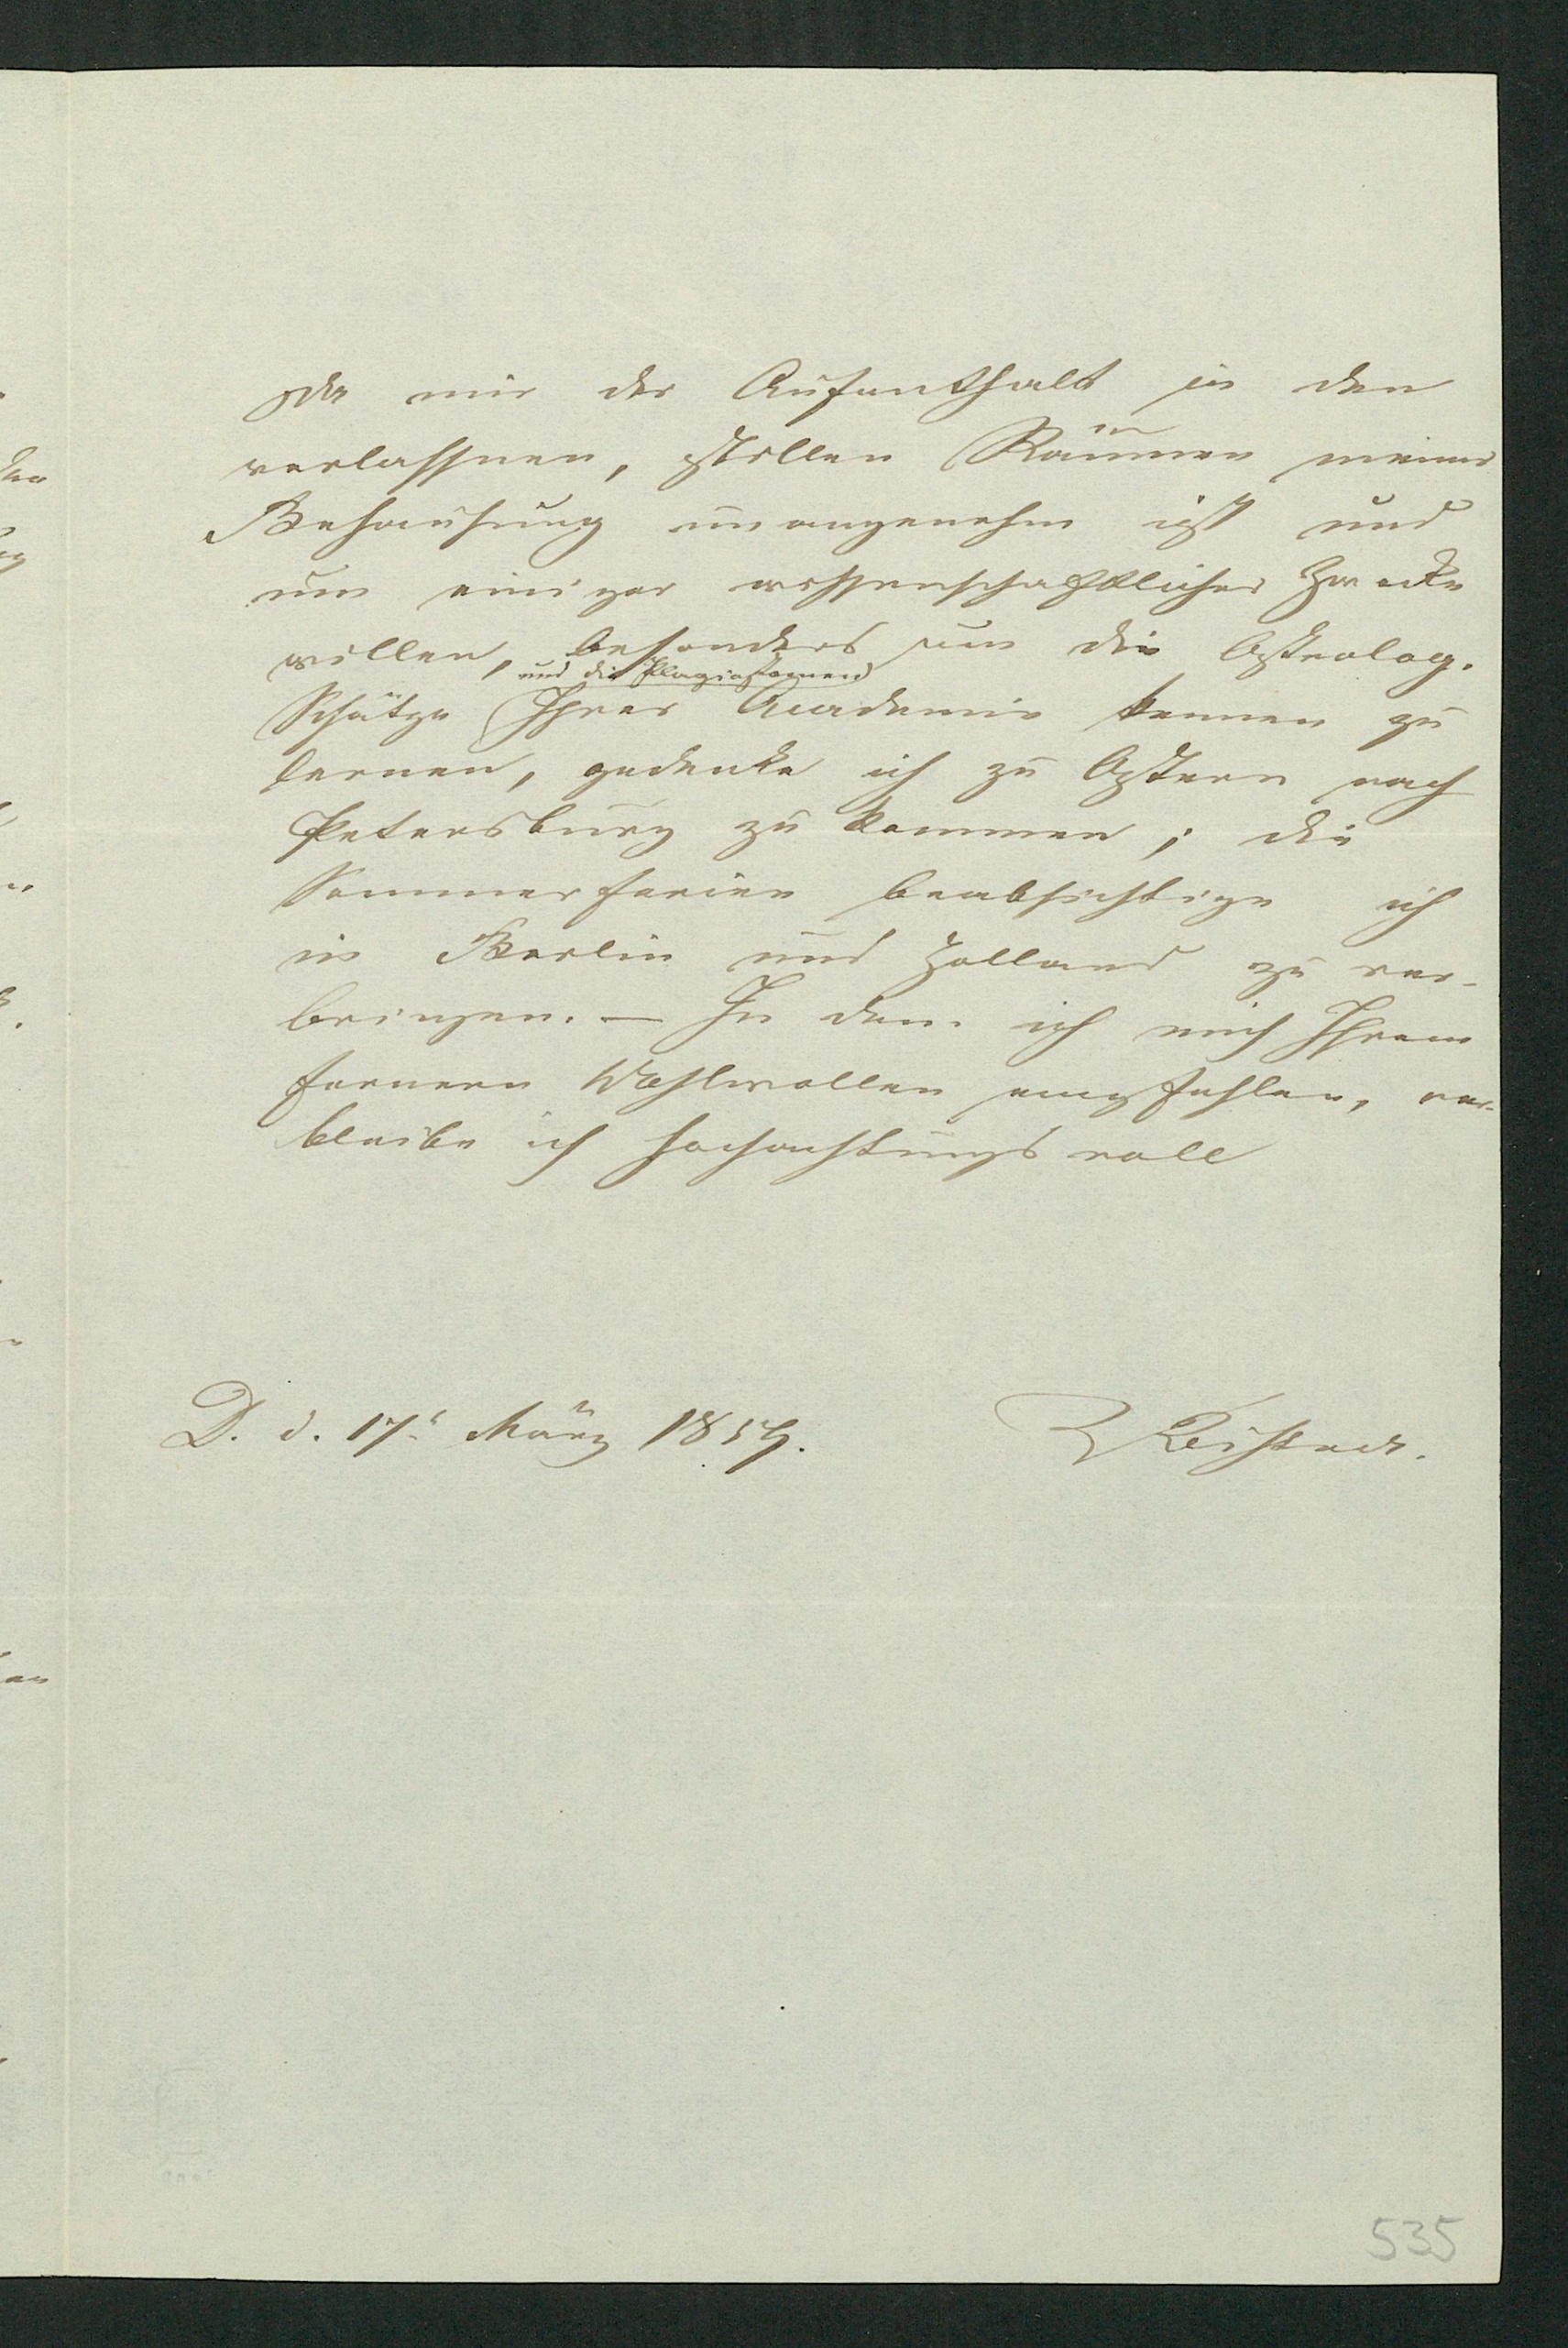 Da mir der Aufenthalt in den
verlassnen, stillen Räumen meiner
Behausung unangenehm ist und
um einiger wissenschaftlicher Zwecke
willen, besonders um die Osteolog.
und die Plagiostomen
Schätze Ihrer Academie kennen zu
lernen, gedenke ich zu Ostern nach
Petersburg zu kommen; die
Sommerferien beabsichtige ich
in Berlin und Holland zu ver-
bringen. — In dem ich mich Ihrem
fernern Wohlwollen empfehlen, ver-
bleibe ich hochachtungsvoll
D. d. 17t März 1854.
Reissner.
535